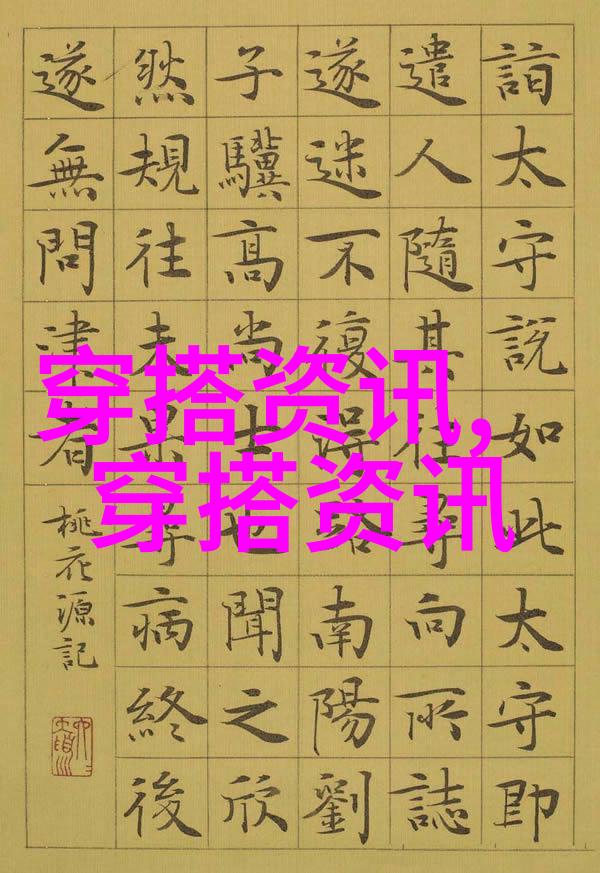 詣太守說如此太守即
遣人隨其往尋向所誌
遂迷不復得路南陽劉
子驥高尚士也聞之欣
然規往未果尋病終後
遂無問津者
桃花源記
穿搭资讯,
穿搭资讯